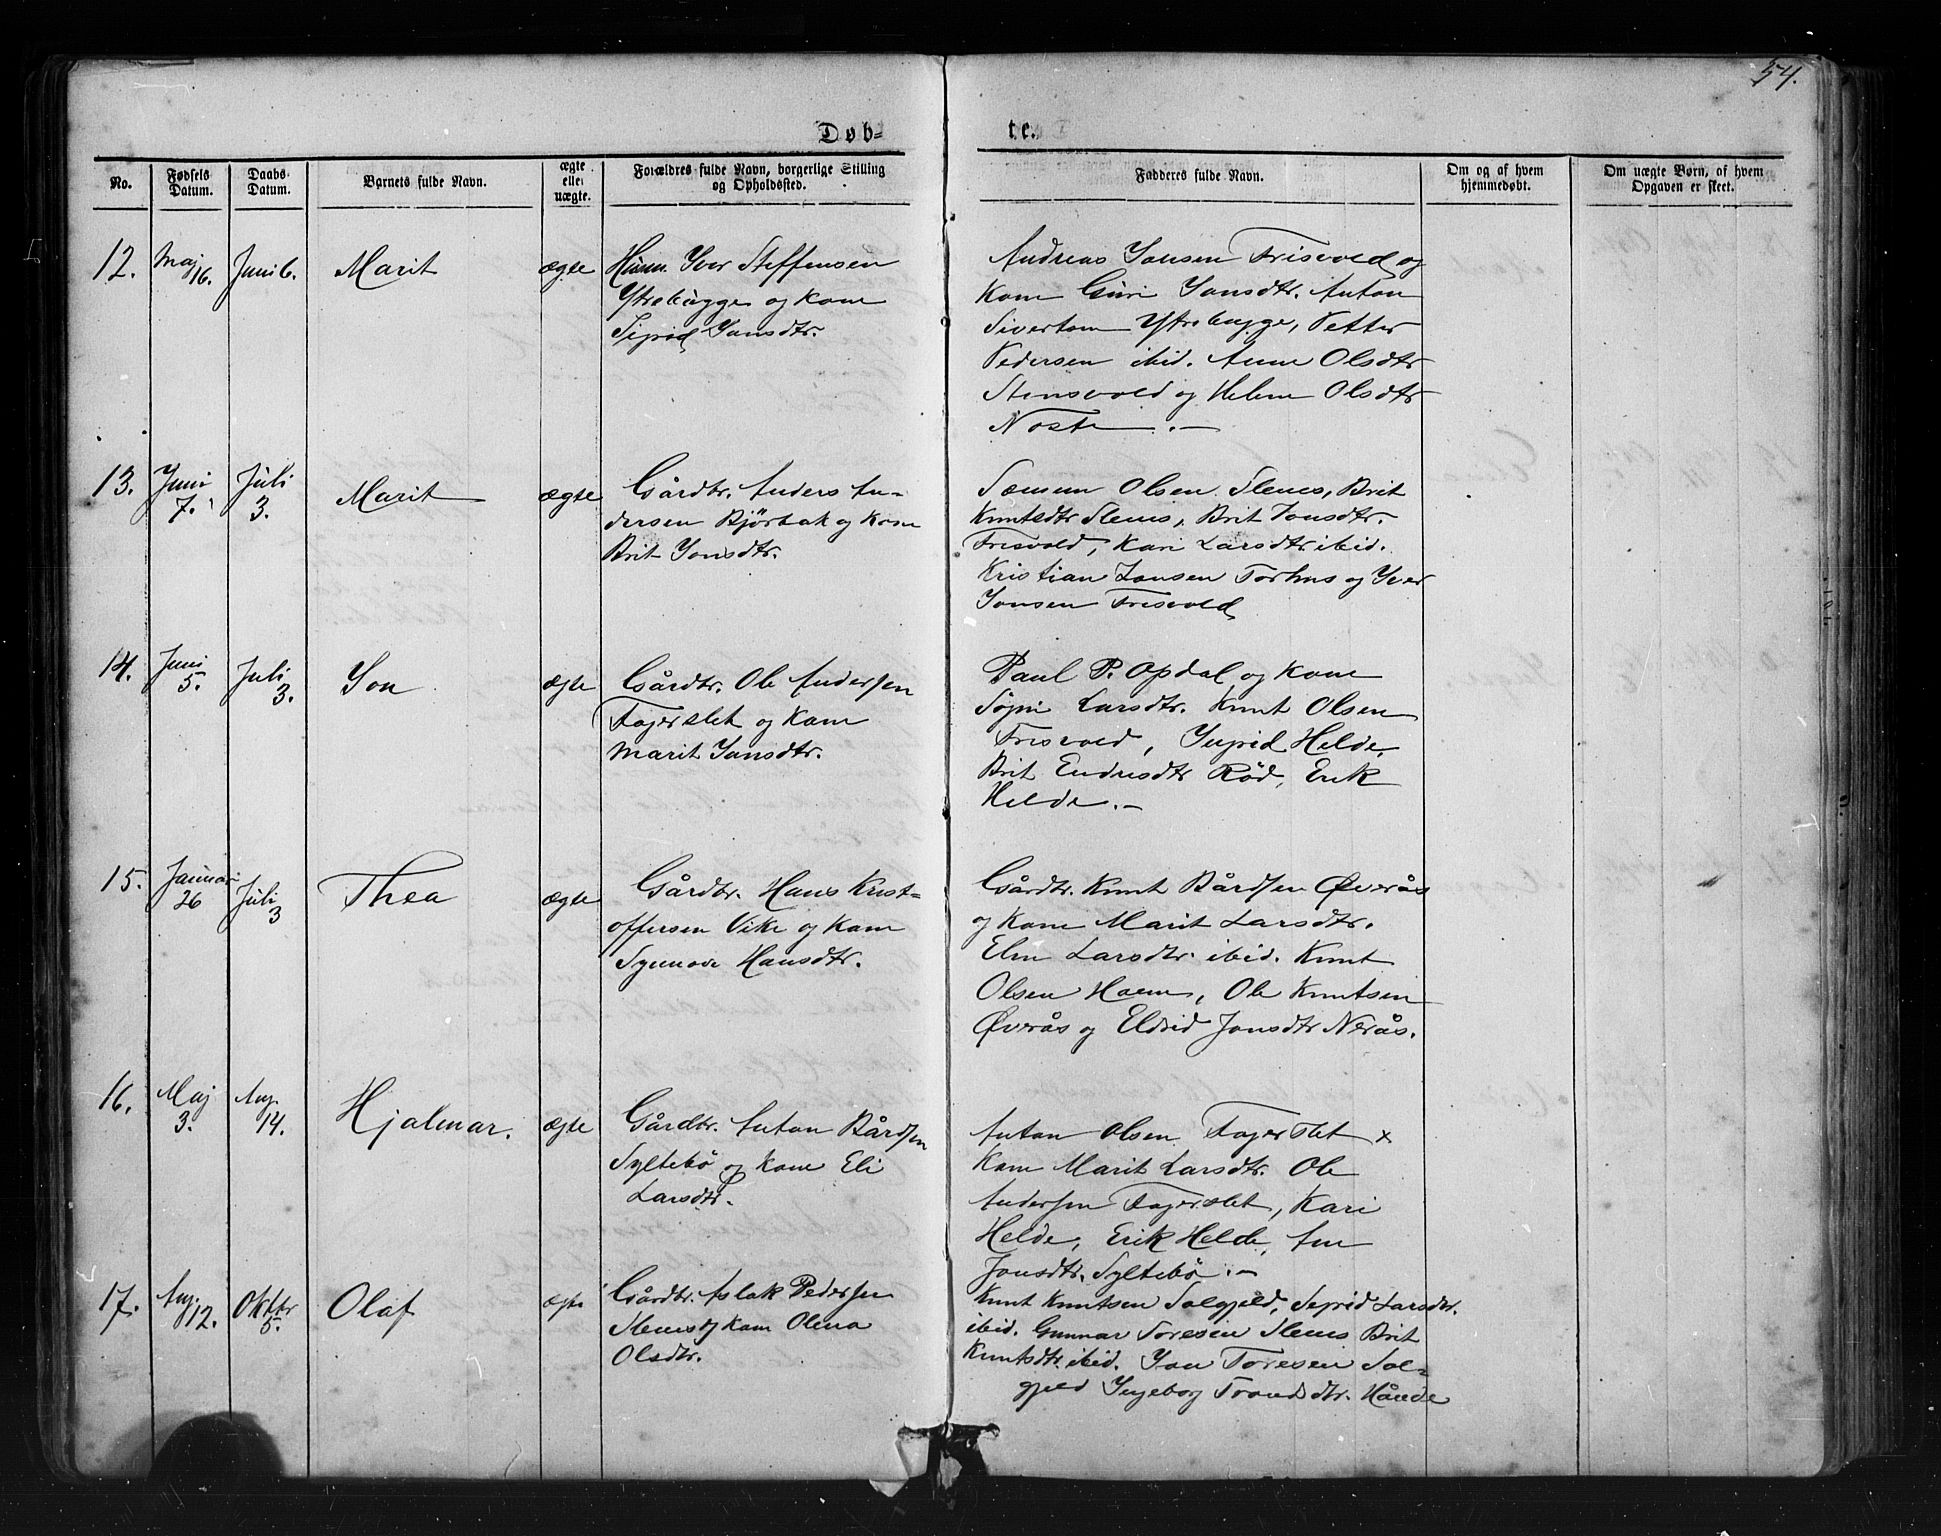 54.
Døb-
te.
No.
Fødsels Datum.
Daabs Datum.
Barnets fulde Navn.
ægte eller uægte.
Forældres fulde Navn, borgerlige Stilling og Opholdssted.
Fadderes fulde Navn.
Om og af hvem hjemmedøbt.
Om uægte Børn, af hvem Opgaven er skeet.
12.
Maj 16.
Juni 6.
Marit
ægte
Husm. Yver Steffensen
Ytrebugge og Kone
Sigrid Jonsdtr.
Andreas Jonsen Frisvold og
Kone Guri Jonsdtr. Anton
Sivertsen Ytrebugge, Petter
Pedersen ibid. Anne Olsdtr
Stensvold og Helene Olsdtr
Noste.-
13.
Juni 7.
Juli 3.
Marit
ægte
Gårdbr. Anders An-
dersen Bjørbak og Kone
Brit Jonsdtr.
Olsen Slenes, Brit
Knutsdtr Slenes, Brit Jonsdtr.
Frisvold, Kari Larsdtr ibid.
Kristian Jonsen Torhus og Yver
Jonsen Frisvold
14.
Juni 5.
Juli 3.
Jon
ægte
Gårdbr. Ole Andersen
Fagerslet og Kone
Marit Jonsdtr.
Paul P. Opdal og Kone
Larsdtr. Knut Olsen
Frisvold, Ingrid Helde,
Brit Endresdtr Rød, Erik
Helde.-
15.
Januar 26
Juli 3
Thea
ægte
Gårdbr. Hans Krist-
offersen Vike og Kone
Synnove Hansdtr.
Gårdbr. Knut Bårdsen Øverås
og Kone Marit Larsdtr.
Elen Larsdtr. ibid. Knut
Olsen Hoem, Ole Knutsen
Øverås og Eldrid Jonsdtr Nerås.
16.
Maj 3.
Aug. 14.
Hjalmar.
ægte
Gårdbr. Anton Bårdsen
Syltebø og Kone Eli
Larsdtr.
Anton Olsen Fagerslet x
Kone Marit Larsdtr. Ole
Andersen Fagerslet, Kari
Helde, Erik Helde, Ane
Jonsdtr. Syltebø.-
17.
Aug. 12.
Oktbr 5.
Olaf
ægte
Gårdbr. Aslak Pedersen
Slenes og Kone Olena
Olsdtr.
Knut Knutsen Solgjeld, Sigrid Larsdtr.
ibid. Gunnar Toresen Slenes Brit
Knutsdtr. ibid. Jon Toresen Sol-
gjeld Ingeborg Trondsdtr. Hånde